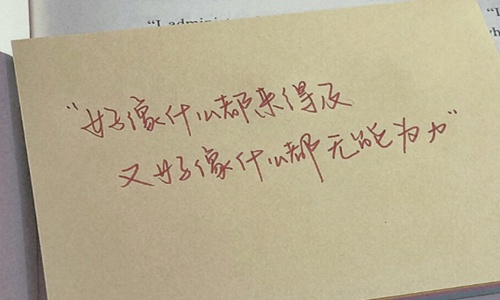 "I admini
"I
"好像什么都来得及
又好像什么都无能为力"